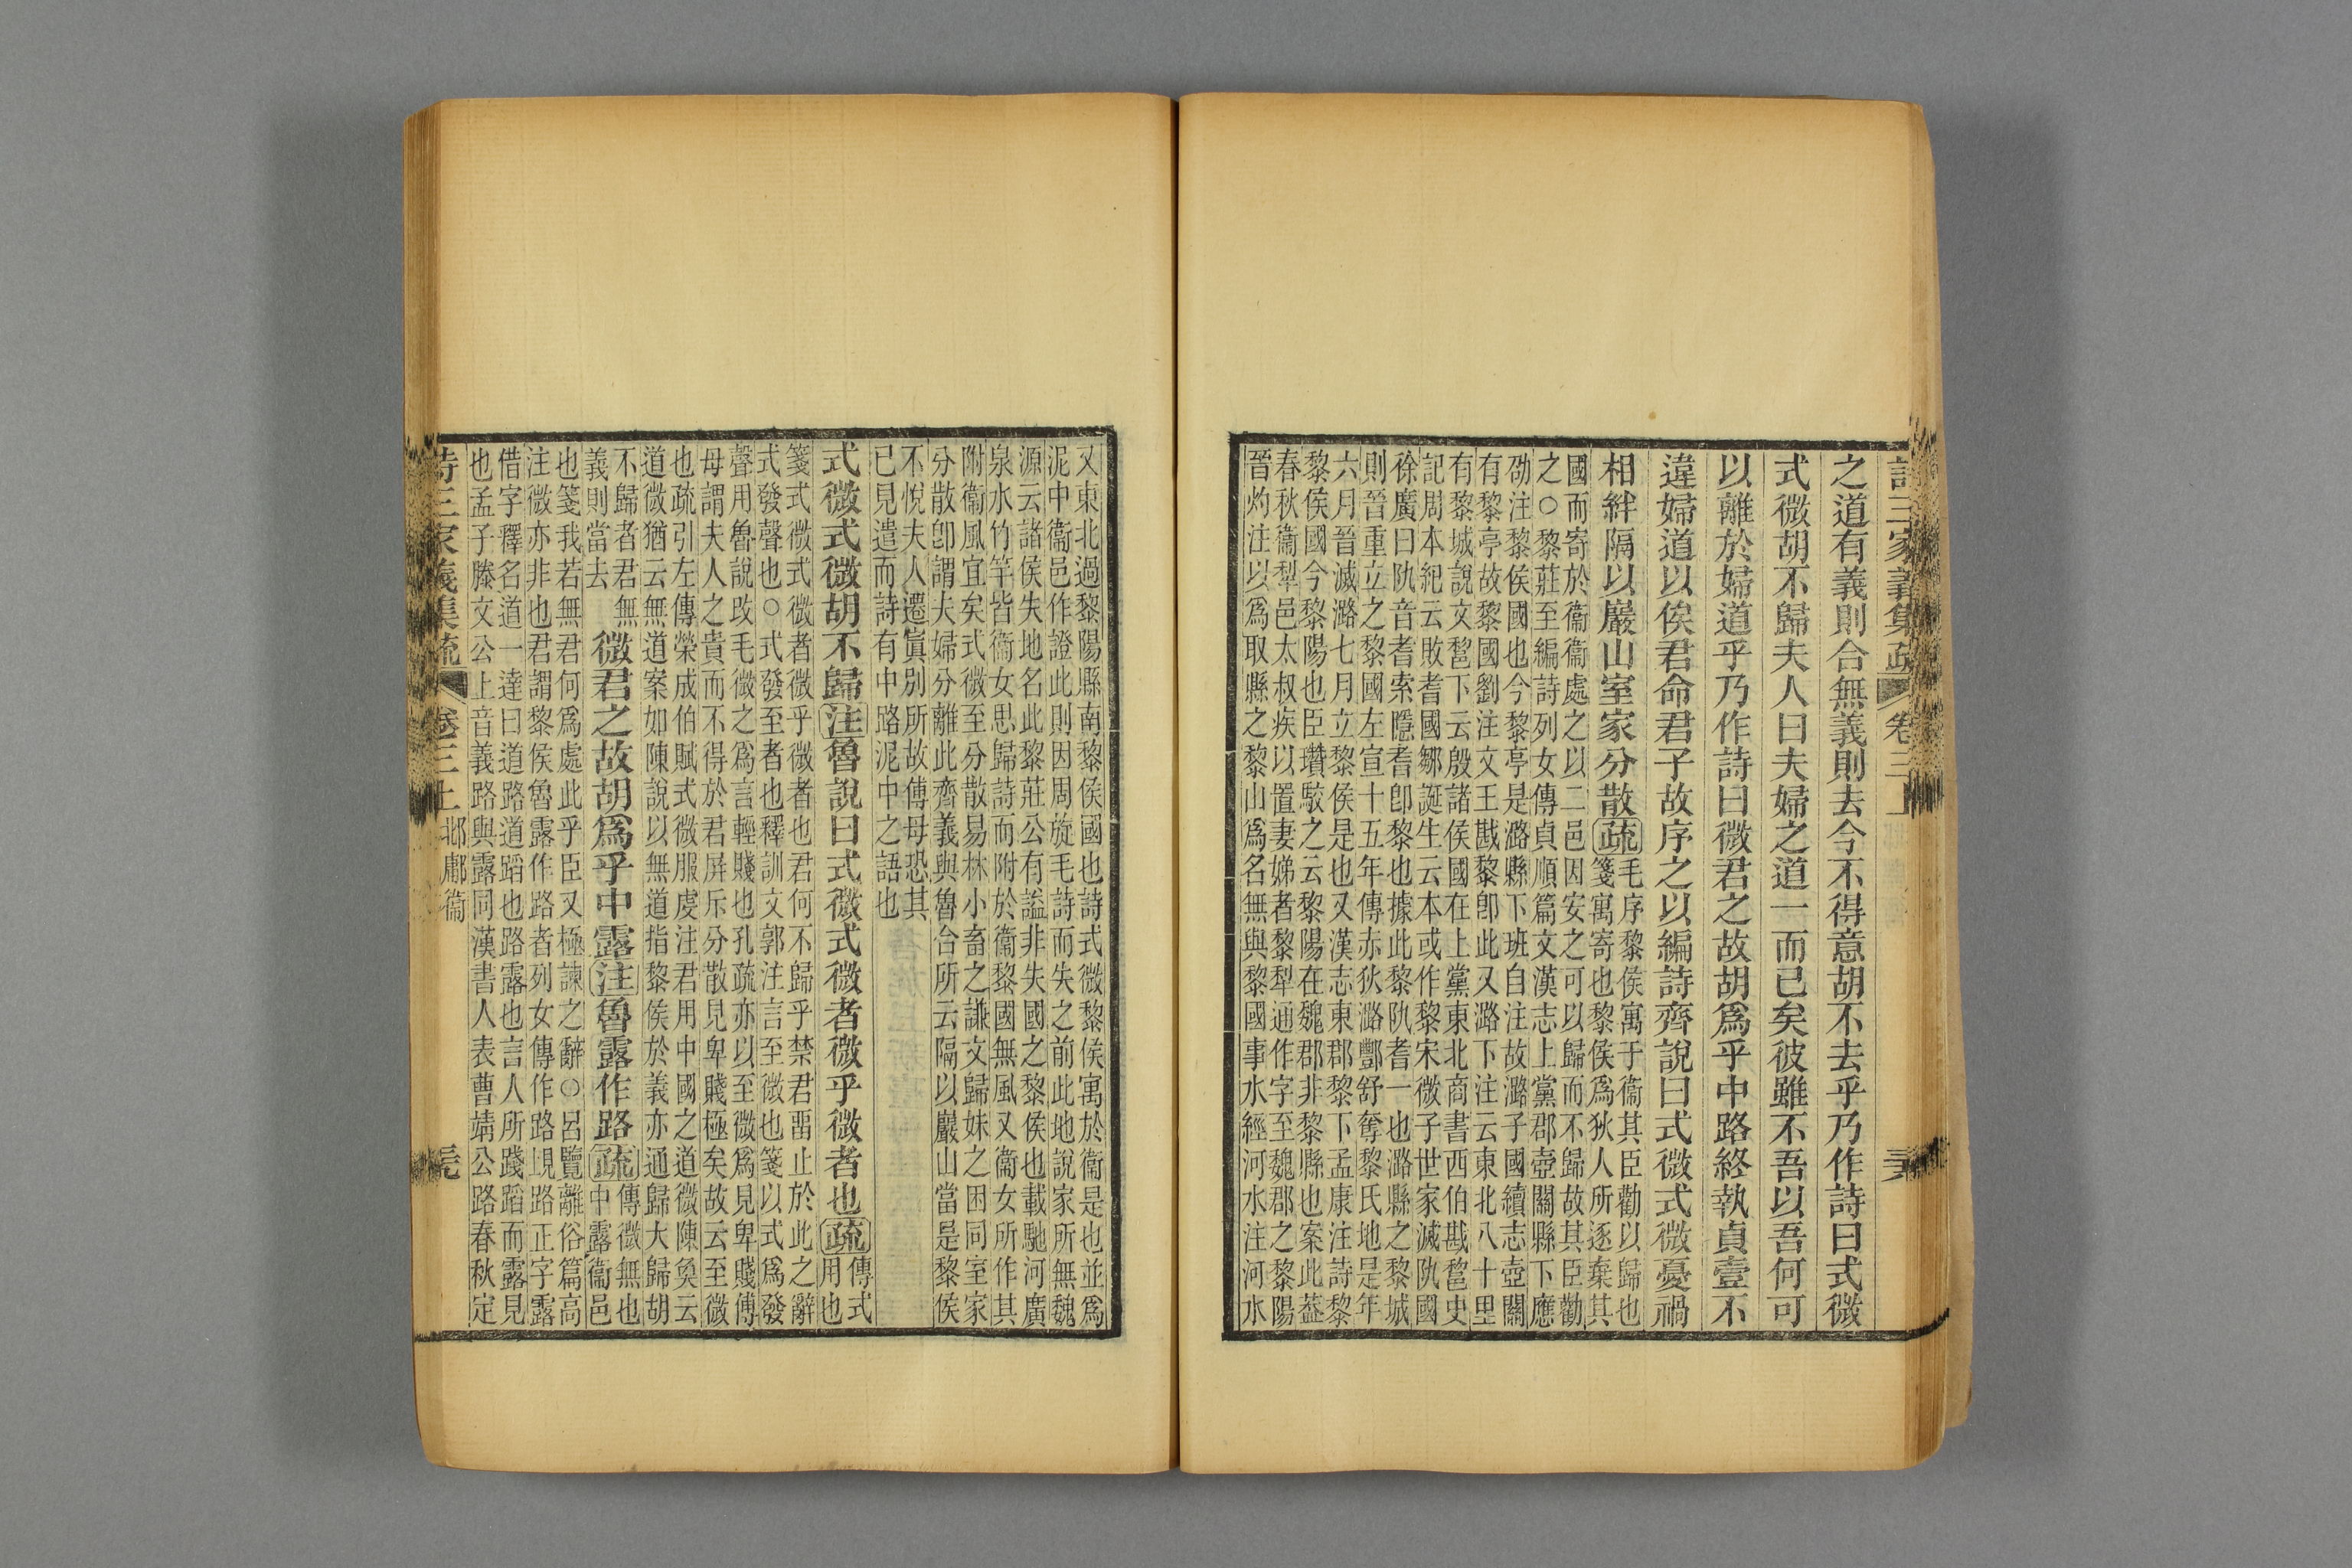 詩三家義集疏 卷三上
之道有義則合無義則去今不得意胡不去乎乃作詩曰式微
式微胡不歸夫人曰夫婦之道一而已矣彼雖不吾以吾何可
以離於婦道乎乃作詩曰微君之故胡爲乎中路終執貞壹不
違婦道以俟君命君子故序之以編詩齊說曰式微式微憂禍
相絆隔以巖山室家分散疏毛序黎侯寓于衞其臣勸以歸也
箋寓寄也黎侯爲狄人所逐棄其
國而寄於衞衞處之以二邑因安之可以歸而不歸故其臣勸
之○黎莊至編詩列女傳貞順篇文漢志上黨郡壺關縣下應
劭注黎侯國也今黎亭是潞縣下班自注故潞子國續志壺關
有黎亭故黎國劉注文王戡黎卽此又潞下注云東北八十里
有黎城說文䣓下云殷諸侯國在上黨東北商書西伯戡䣓史
記周本紀云敗耆國鄒誕生云本或作黎宋微子世家滅阢國
徐廣曰阢音耆索隱耆卽黎也據此黎阢耆一也潞縣之黎城
則晉重立之黎國左宣十五年傳赤狄潞酆舒奪黎氏地是年
六月晉滅潞七月立黎侯是也又漢志東郡黎下孟康注詩黎
黎侯國今黎陽也臣瓚駮之云黎陽在魏郡非黎縣也案此葢
春秋衞犁邑太叔疾以置妻娣者黎犁通作字至魏郡之黎陽
晉灼注以爲取縣之黎山爲名無與黎國事水經河水注河水
又東北過黎陽縣南黎侯國也詩式微黎侯寓於衞是也並爲
泥中衞邑作證此則因周旋毛詩而失之前此地說家所無魏
源云諸侯失地名此黎莊公有謚非失國之黎侯也載馳河廣
泉水竹竿皆衞女思歸詩而附於衞黎國無風又衞女所作其
附衞風宜矣式微至分散易林小畜之謙文歸妹之困同室家
分散卽謂夫婦分離此齊義與魯合所云隔以巖山當是黎侯
不悅夫人遷寘別所故傅母恐其
已見遣而詩有中路泥中之語也
式微式微胡不歸注魯說曰式微式微者微乎微者也疏傳式
用也
箋式微式微者微乎微者也君何不歸乎禁君畱止於此之辭
式發聲也○式發至者也釋訓文郭注言至微也箋以式爲發
聲用魯說攺毛微之爲言輕賤也孔疏亦以至微爲見卑賤傅
母謂夫人之貴而不得於君屏斥分散見卑賤極矣故云至微
也疏引左傳榮成伯賦式微服虔注君用中國之道微陳奐云
道微猶云無道案如陳說以無道指黎侯於義亦通歸大歸胡
不歸者君無
義則當去
微君之故胡爲乎中露注魯露作路疏傳微無也
中露衞邑
也箋我若無君何爲處此乎臣又極諫之辭○呂覽離俗篇高
注微亦非也君謂黎侯魯露作路者列女傳作路晛路正字露
借字釋名道一達曰道路道蹈也路露也言人所踐蹈而露見
也孟子滕文公上音義路與露同漢書人表曹靖公路春秋定
詩三家義集疏 卷三上 邶鄘衞